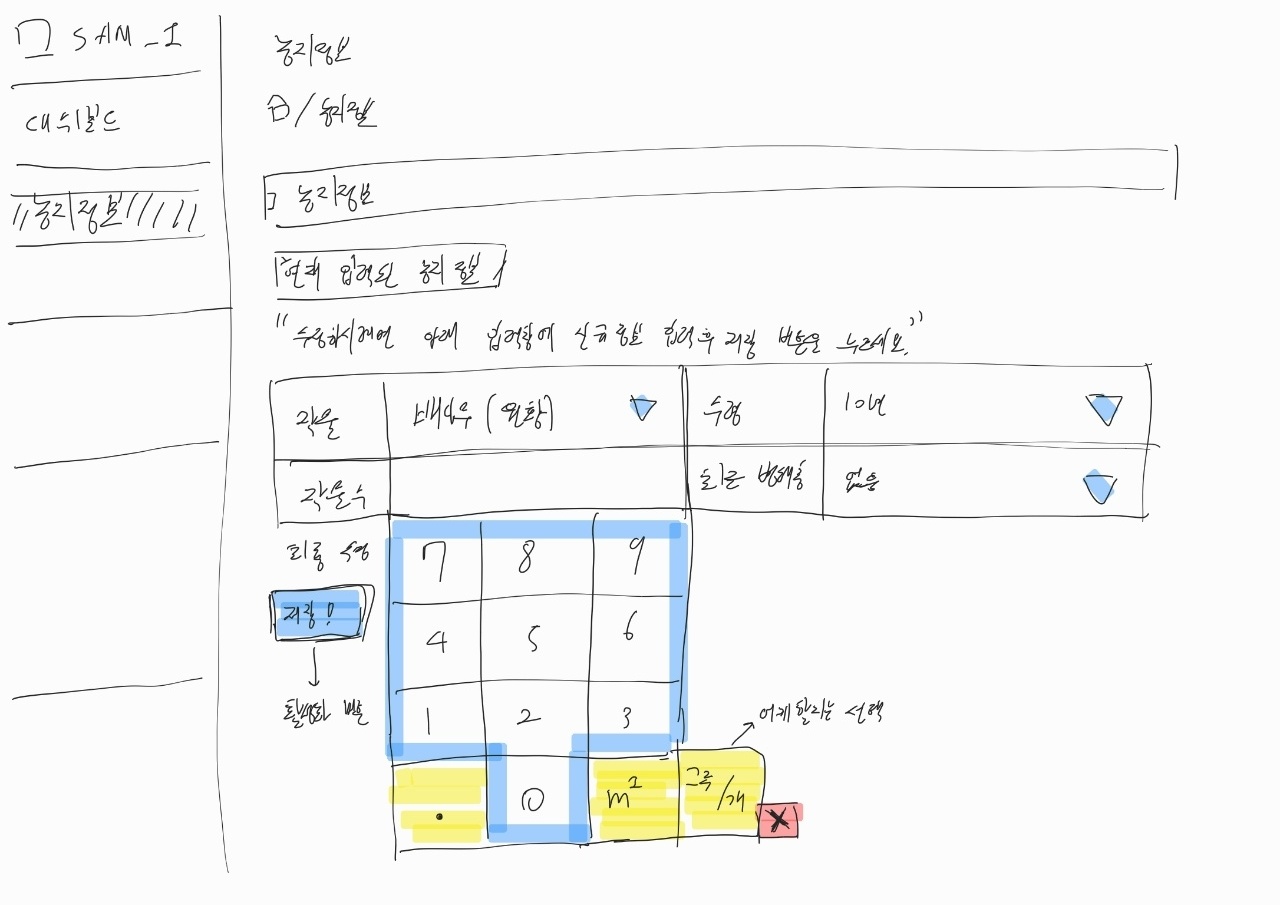 SAM_I
대쉬보드
농지정보
농지정보
/ 농지정보
농지정보
현재 입력된 농지 정보
"수정하시려면 아래 입력창에 신규정보 입력후 저장 버튼을 누르세요."
작물 수령 10년
작물수 최근 병해충 없음
저장!
활성화 버튼
7 8 9
4 5 6
1 2 3
. 0 m² 그루/개
X
여기 할라는 선택